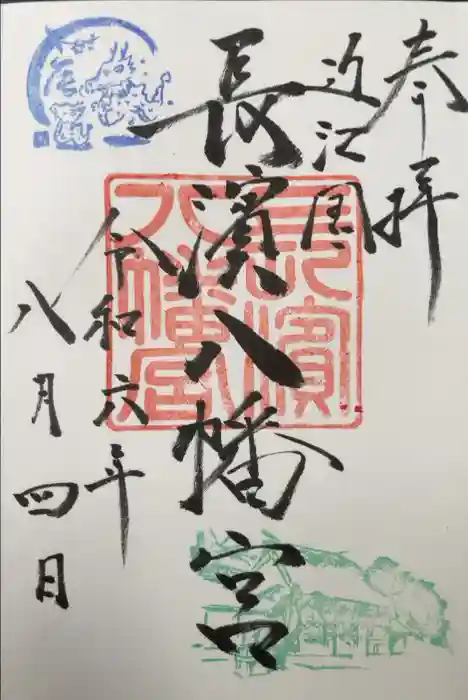 奉拝
近江国
長濱八幡宮
令和六年
八月四日
長濱八幡宮
辰